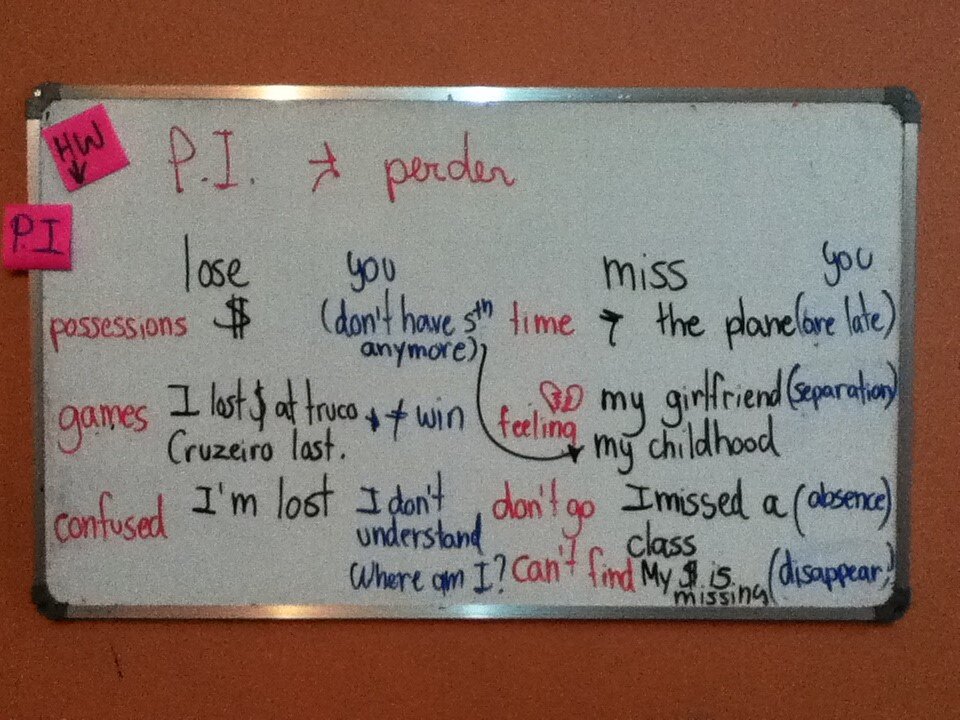 HW
P.I. perder
P.I
lose you
possessions $ (don't have sth
anymore)
games I lost $ at truco ≠ win
Cruzeiro lost.
confused I'm lost I don't
understand
Where am I?
miss you
time the plane (are late)
feeling my girlfriend (separation)
my childhood
don't go I missed a (absence)
class
can't find My $ is (disappear)
missing